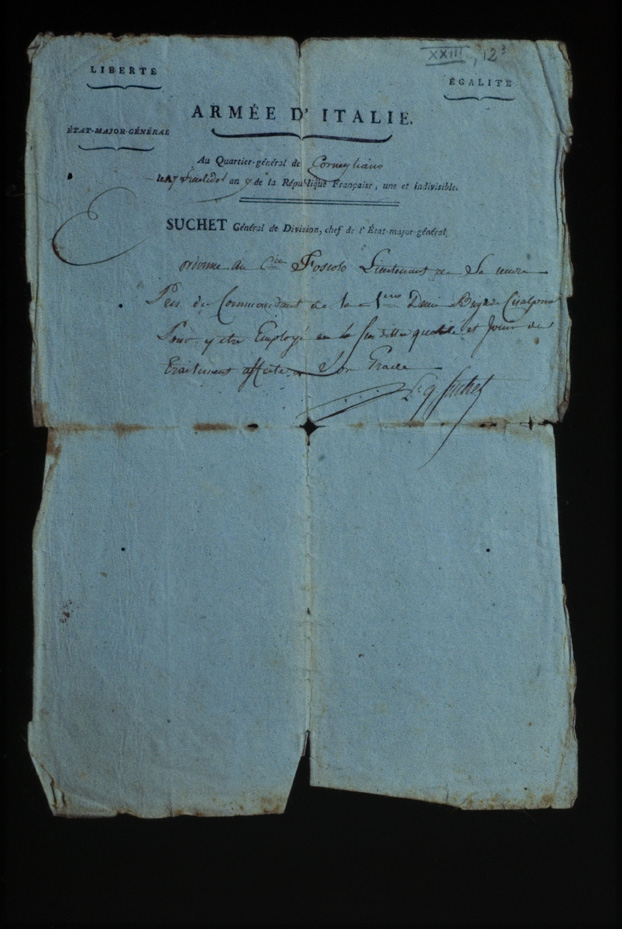 XXIII, 12³
LIBERTÉ
ÉGALITÉ
ARMÉE D'ITALIE.
ÉTAT-MAJOR-GÉNÉRAL
Au Quartier-général de Cornegliano
le 17 Fructidor an 7 de la République Française, une et indivisible.
SUCHET Général de Division, chef de l'État-major-général,
ordonne au Cen Foscolo Lieutenant de Se rendre
Près du Commandant de la 1ere Demi Brigde Cisalpine
Pour y être Employé en la susditte qualité et Jouir du
traitement affecté a Son Grade
Suchet